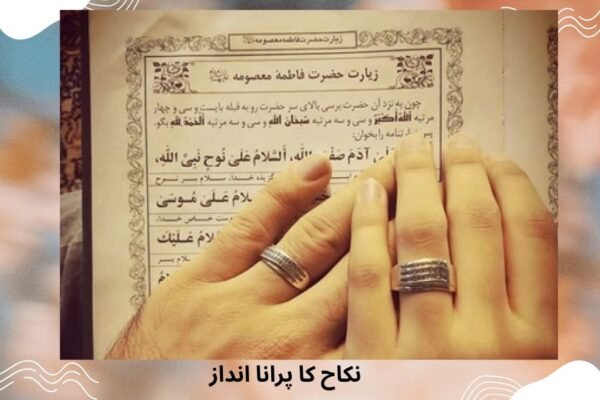 زیارت حضرت فاطمه معصومه
زیارت حضرت فاطمهٔ معصومه
چون به نزد آن حضرت برسی بالای سر حضرت رو به قبله بایست و سی و چهار
مرتبه اَللهُ اَکبَرُ و سی و سه مرتبه سُبحانَ اللهِ و سی و سه مرتبه اَلحَمدُ لِلهِ بگو.
پس زیارتنامه را بخوان:
آدَمَ صَفْوَةِ اللهِ، اَلسَّلامُ عَلىٰ نُوحٍ نَبِيِّ اللهِ،
گزیده خدا، سلام بر نوح
لامُ عَلىٰ مُوسىٰ
خاص خدا،
لامُ عَلَيْكَ
سلام بر
نکاح کا پرانا انداز